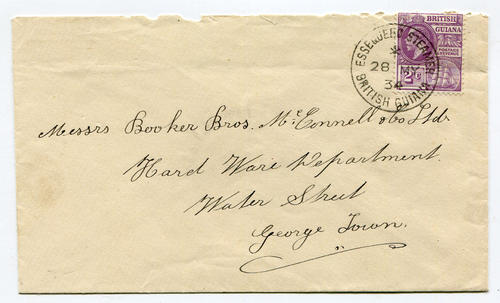 BRITISH
GUIANA
POSTAGE
& REVENUE
2c
ESSEQUEBO STEAMER
28 MY
34
BRITISH GUIANA
Messrs Booker Bros. McConnell & Co Ltd.
Hard Ware Department.
Water Street
George Town.